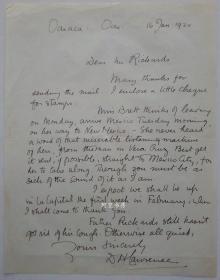 Oaxaca. Oax. 16 Jan 1920
Dear Mr Rickards
Many thanks for
sending the mail. I enclose a little cheque
for stamps.
Miss Brett thinks of leaving
on Monday, arrive Mexico Tuesday morning
on her way to New Mexico - She never heard
a word of that miserable listening machine
of hers, from the man in Vera Cruz. Best get
it sent, if possible, straight to Mexico City, for
her to take along. Though you must be as
sick of the sound of it as I am.
I expect we shall be up
in La Capital the first week in February: when
I shall come to thank you.
Father Rickards still hasn't
got rid of his cough. Otherwise all quiet.
Yours Sincerely
D H Lawrence